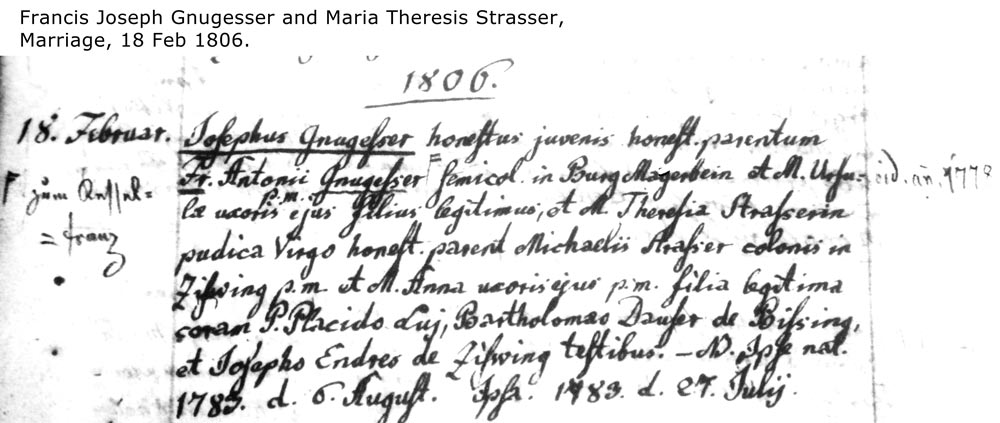 Francis Joseph Gnugesser and Maria Theresis Strasser,
Marriage, 18 Feb 1806.
1806.
18. Februar. Josephus Gnugesser honestus juvenis honest. parentum
Fr. Antonii Gnugesser semicol. in Burg Magerbein et M. Ursu-
læ uxoris p.m. ejus filius legitimus, et M. Theresia Strasserin
pudica Virgo honest. parent Michaelis Strasser colonis in
Zisswing p.m. et M. Anna uxoris ejus p.m. filia legitima
coram P. Placido Luz, Bartholomæo Dauser de Bissing,
et Josepho Endres de Zisswing testibus. – N. Ipse nat.
1783. d. 6. August. Ipsa. 1783. d. 27. Julij.
zum
= franz
1778